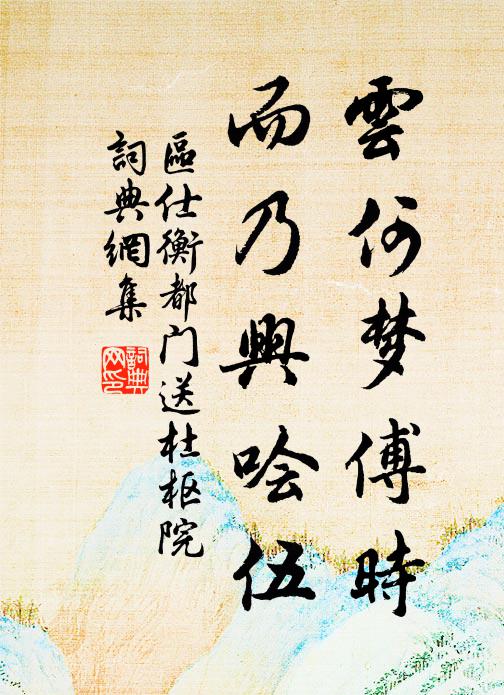 雲何梦傅時
而乃興哙伍
區仕衡都门送杜枢院
詞典網集
詞典
网印